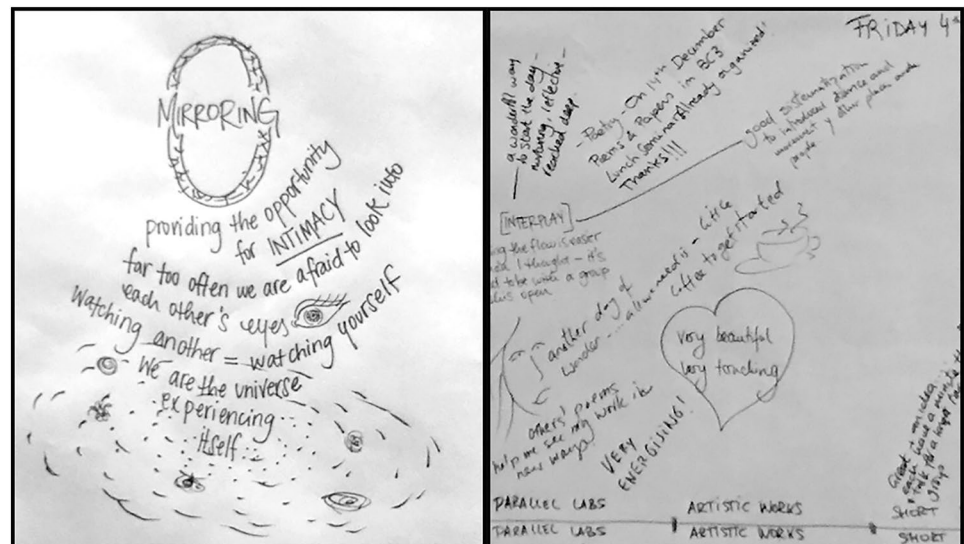 MIRRORING
providing the opportunity
for INTIMACY
far too often we are afraid to look into
each other's eyes
Watching another = watching yourself
We are the universe
experiencing
itself
FRIDAY 4
a wonderful way
to start the day -
nurturing, reflective -
reached deep.
- Poetry - On 14th December
Poems & Papers in BC3
Lunch Seminar Already organized!
Thanks!!!
good systematization
to introduce dance and
movement y other places and
people
[INTERPLAY]
ing the flow is easier
I thought - it's
to be with a group
open
another day of
wonder
is - like
coffee to get started
very beautiful
very touching
others' poems
help me see my work in
new ways
VERY
ENERGISING!
Great an idea
each have a minute
talk for a larger
group
PARALLEL LABS ARTISTIC WORKS SHORT
PARALLEL LABS ARTISTIC WORKS SHORT